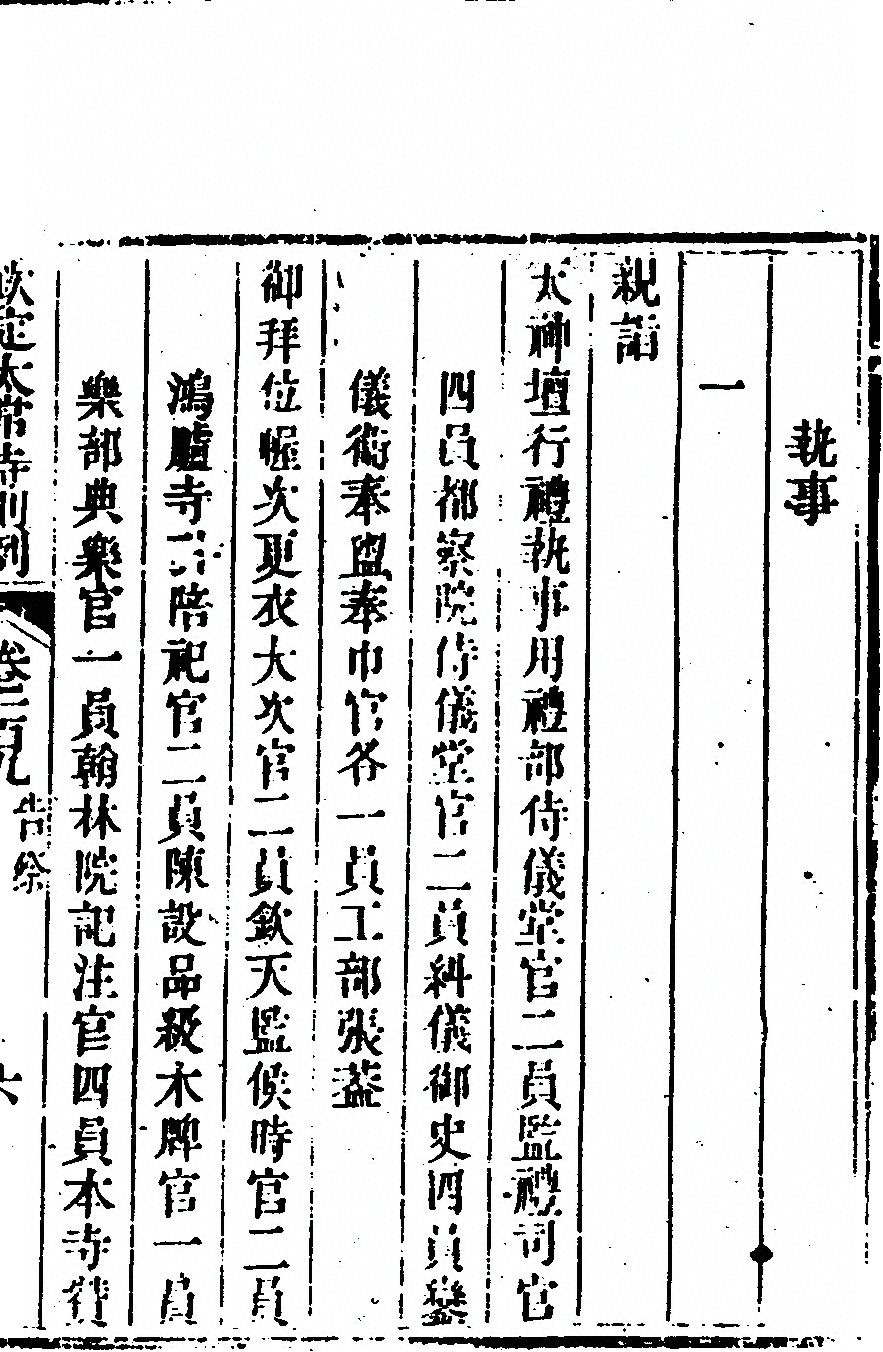 執事
一
親詣
太神壇行禮執事用禮部侍儀堂官二員監禮司官
四員都察院侍儀堂官二員糾儀御史四員鑾
儀衛奉盥奉巾官各一員工部張葢
御拜位幄次更衣大次官二員欽天監候時官二員
鴻臚寺引陪祀官二員陳設品級木牌官一員
樂部典樂官一員翰林院記注官四員本寺贊
欽定太常寺則例
卷二百九
告祭
六